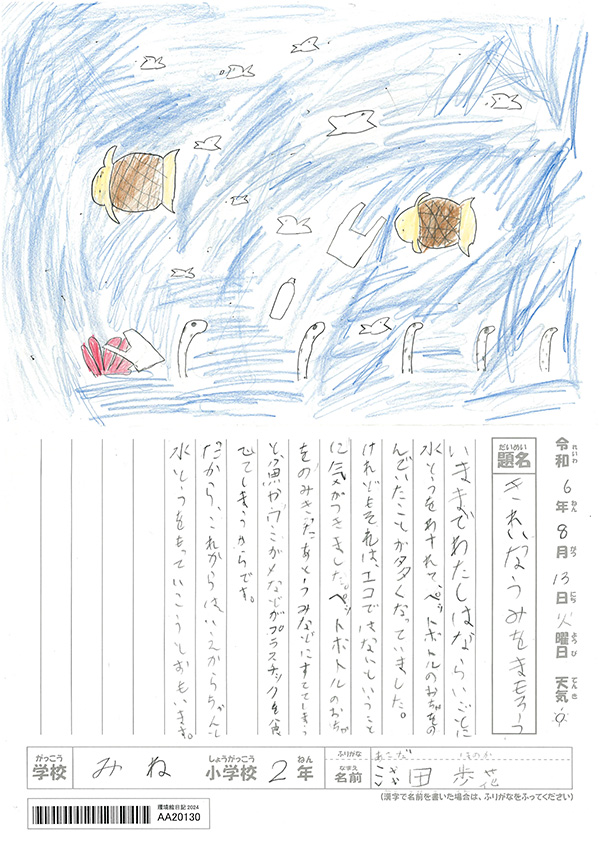 令和6年8月13日火曜日 天気
れいわ ねん がつ にち ようび てんき
だいめい
題名 きれいなうみをまもろう
いままでわたしはならいごとに
水とうをわすれて、ペットボトルのおちゃをの
んでいたことが多くなっていました。
けれどもそれは、エコではないということ
に気がつきました。ペットボトルのおちゃ
をのみきったあとうみなどにすててしまう
と、魚やウミガメなどがプラスチックを食
べてしまうからです。
だから、これからはいえからちゃんと
水とうをもっていこうとおもいます。
がっこう しょうがっこう ねん
学校 みね 小学校 2年
ふりがな ほのか
なまえ
名前 田 歩花
(漢字で名前を書いた場合は、ふりがなをふってください)
環境絵日記2024
AA20130